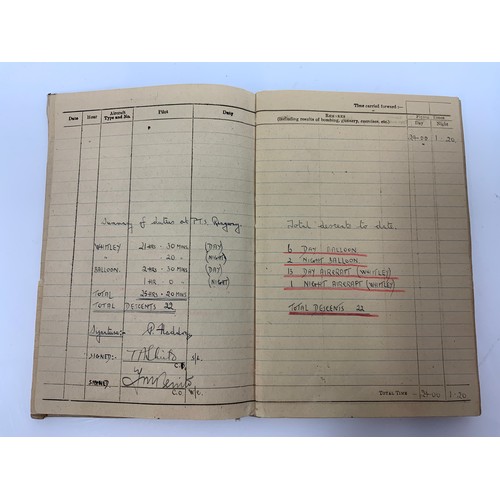 Date Hour Aircraft Type and No. Pilot Duty
Summary of Duties at P.T.S. Ringway
WHITLEY 21 HRS - 30 MINS (DAY)
" 20 " (NIGHT)
BALLOON. 2 HRS - 30 MINS (DAY)
1 HR 0 " (NIGHT)
TOTAL 25 HRS - 20 MINS
TOTAL DESCENTS 22
Signature:-
SIGNED:- S/L.
SIGNED. C.O. W/C.
Time carried forward :-
REMARKS
(Including results of bombing, gunnery, exercises, etc.)
Flying Times
Day Night
24-00 1 20
Total descents to date.
6 DAY BALLOON
2 NIGHT BALLOON.
13 DAY AIRCRAFT (WHITLEY)
1 NIGHT AIRCRAFT (WHITLEY)
TOTAL DESCENTS 22
TOTAL TIME 24-00 1.20